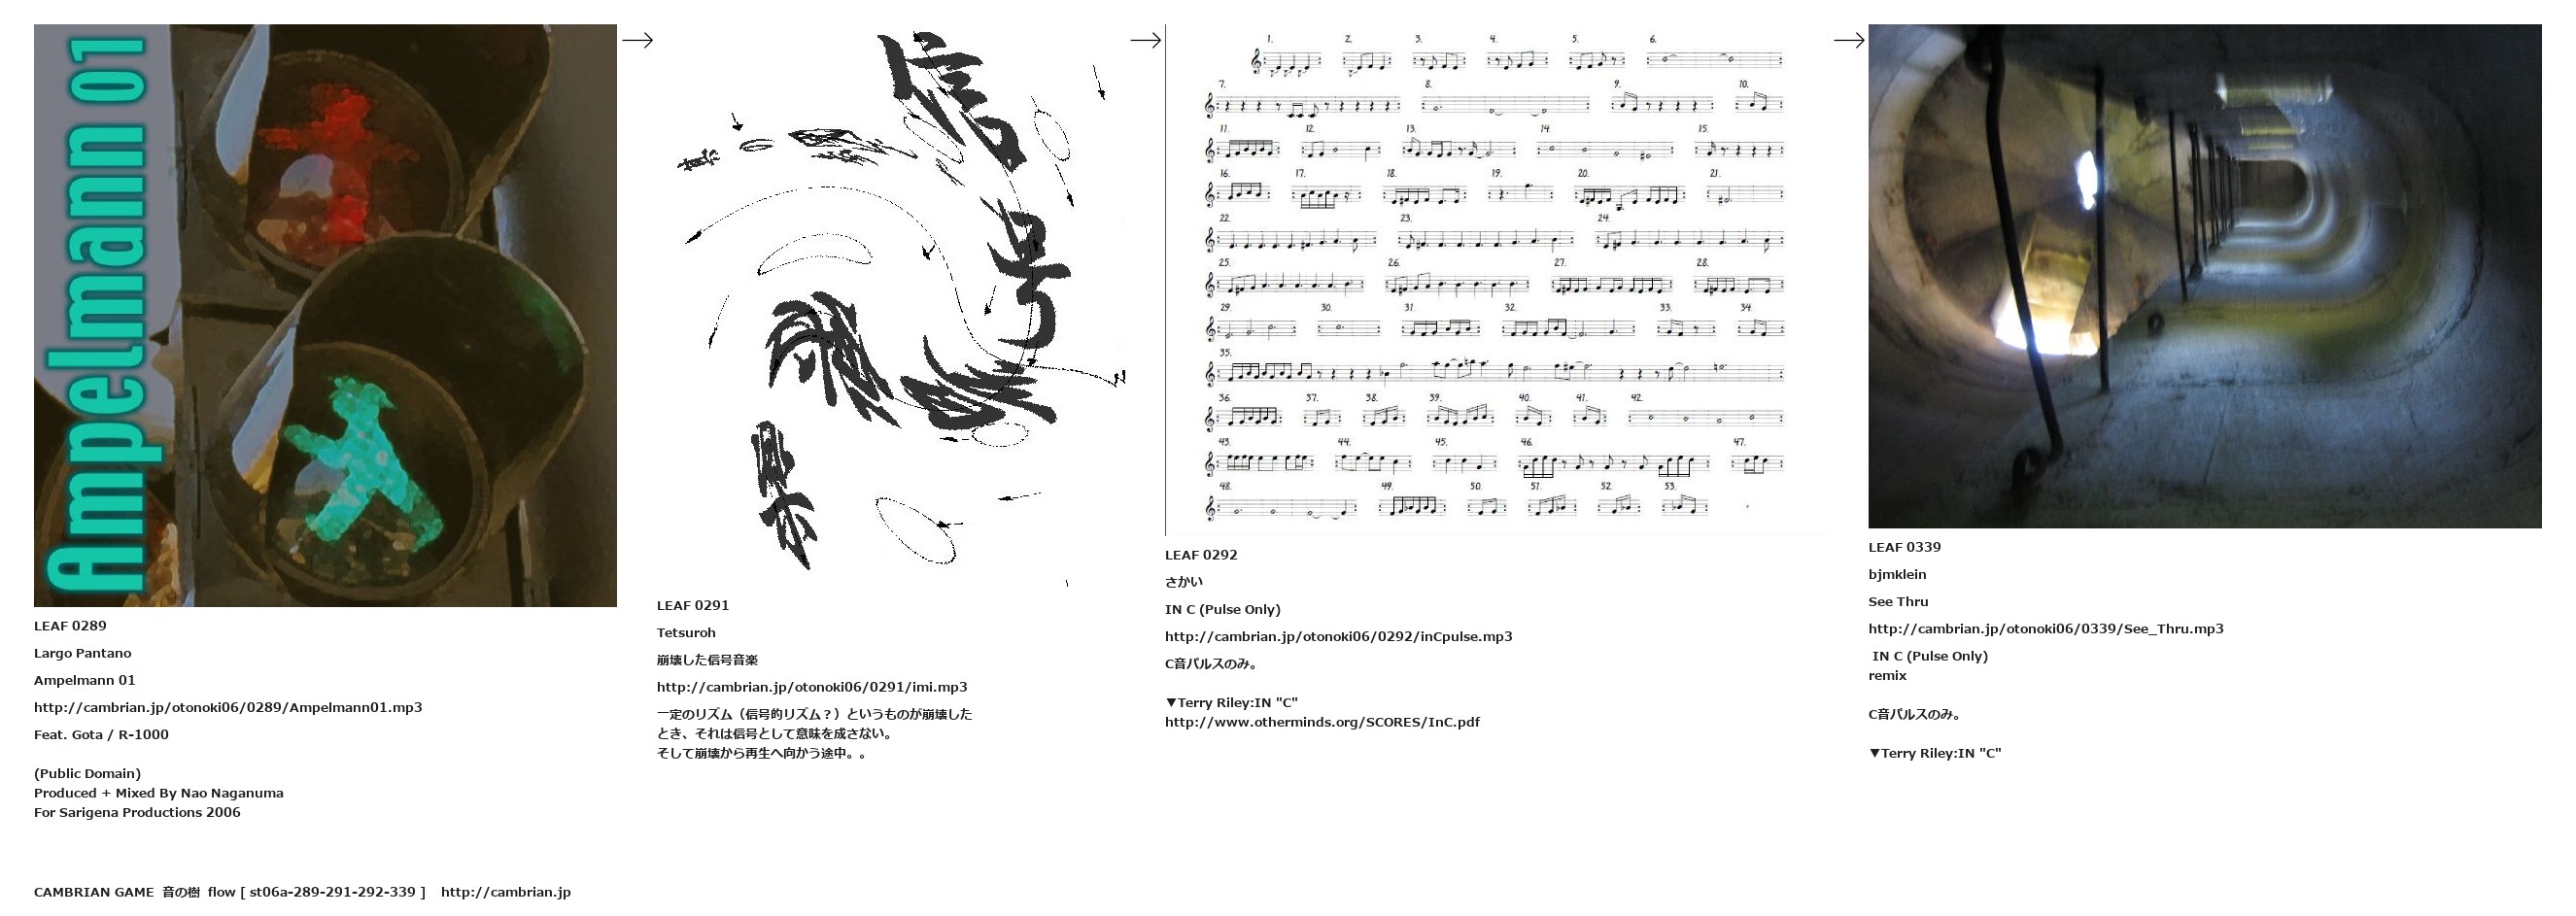 Ampelmann 01
LEAF 0289
Largo Pantano
Ampelmann 01
http://cambrian.jp/otonoki06/0289/Ampelmann01.mp3
Feat. Gota / R-1000
(Public Domain)
Produced + Mixed By Nao Naganuma
For Sarigena Productions 2006
信号音楽
LEAF 0291
Tetsuroh
崩壊した信号音楽
http://cambrian.jp/otonoki06/0291/imi.mp3
一定のリズム（信号的リズム？）というものが崩壊した
とき、それは信号として意味を成さない。
そして崩壊から再生へ向かう途中。。
1. 2. 3. 4. 5. 6.
7. 8. 9. 10.
11. 12. 13. 14. 15.
16. 17. 18. 19. 20. 21.
22. 23. 24.
25. 26. 27. 28.
29. 30. 31. 32. 33. 34.
35.
36. 37. 38. 39. 40. 41. 42.
43. 44. 45. 46. 47.
48. 49. 50. 51. 52. 53.
LEAF 0292
さかい
IN C (Pulse Only)
http://cambrian.jp/otonoki06/0292/inCpulse.mp3
C音パルスのみ。
▼Terry Riley:IN "C"
http://www.otherminds.org/SCORES/InC.pdf
LEAF 0339
bjmklein
See Thru
http://cambrian.jp/otonoki06/0339/See_Thru.mp3
IN C (Pulse Only)
remix
C音パルスのみ。
▼Terry Riley:IN "C"
CAMBRIAN GAME 音の樹 flow [ st06a-289-291-292-339 ] http://cambrian.jp